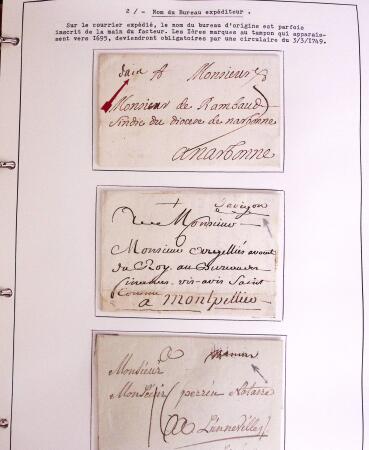 2/- Nom du Bureau expéditeur.
Sur le courrier expédié, le nom du bureau d'origine est parfois
inscrit de la main du facteur. Les 1ères marques au tampon qui apparais-
sent vers 1695, deviendront obligatoires par une circulaire du 3/3/1749.
A Monsieur
Monsieur de Rambaud
sindic du diocese de narbonne
a narbonne
Monsieur
Monsieur
du Roy au
vis-avis Saint
a Montpellier
Monsieur
Monsieur perrin Notaire
a Lunneville